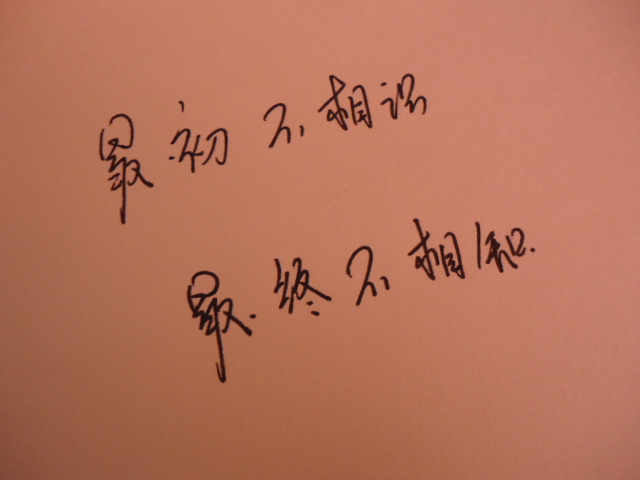 最初不相识
最终不相知